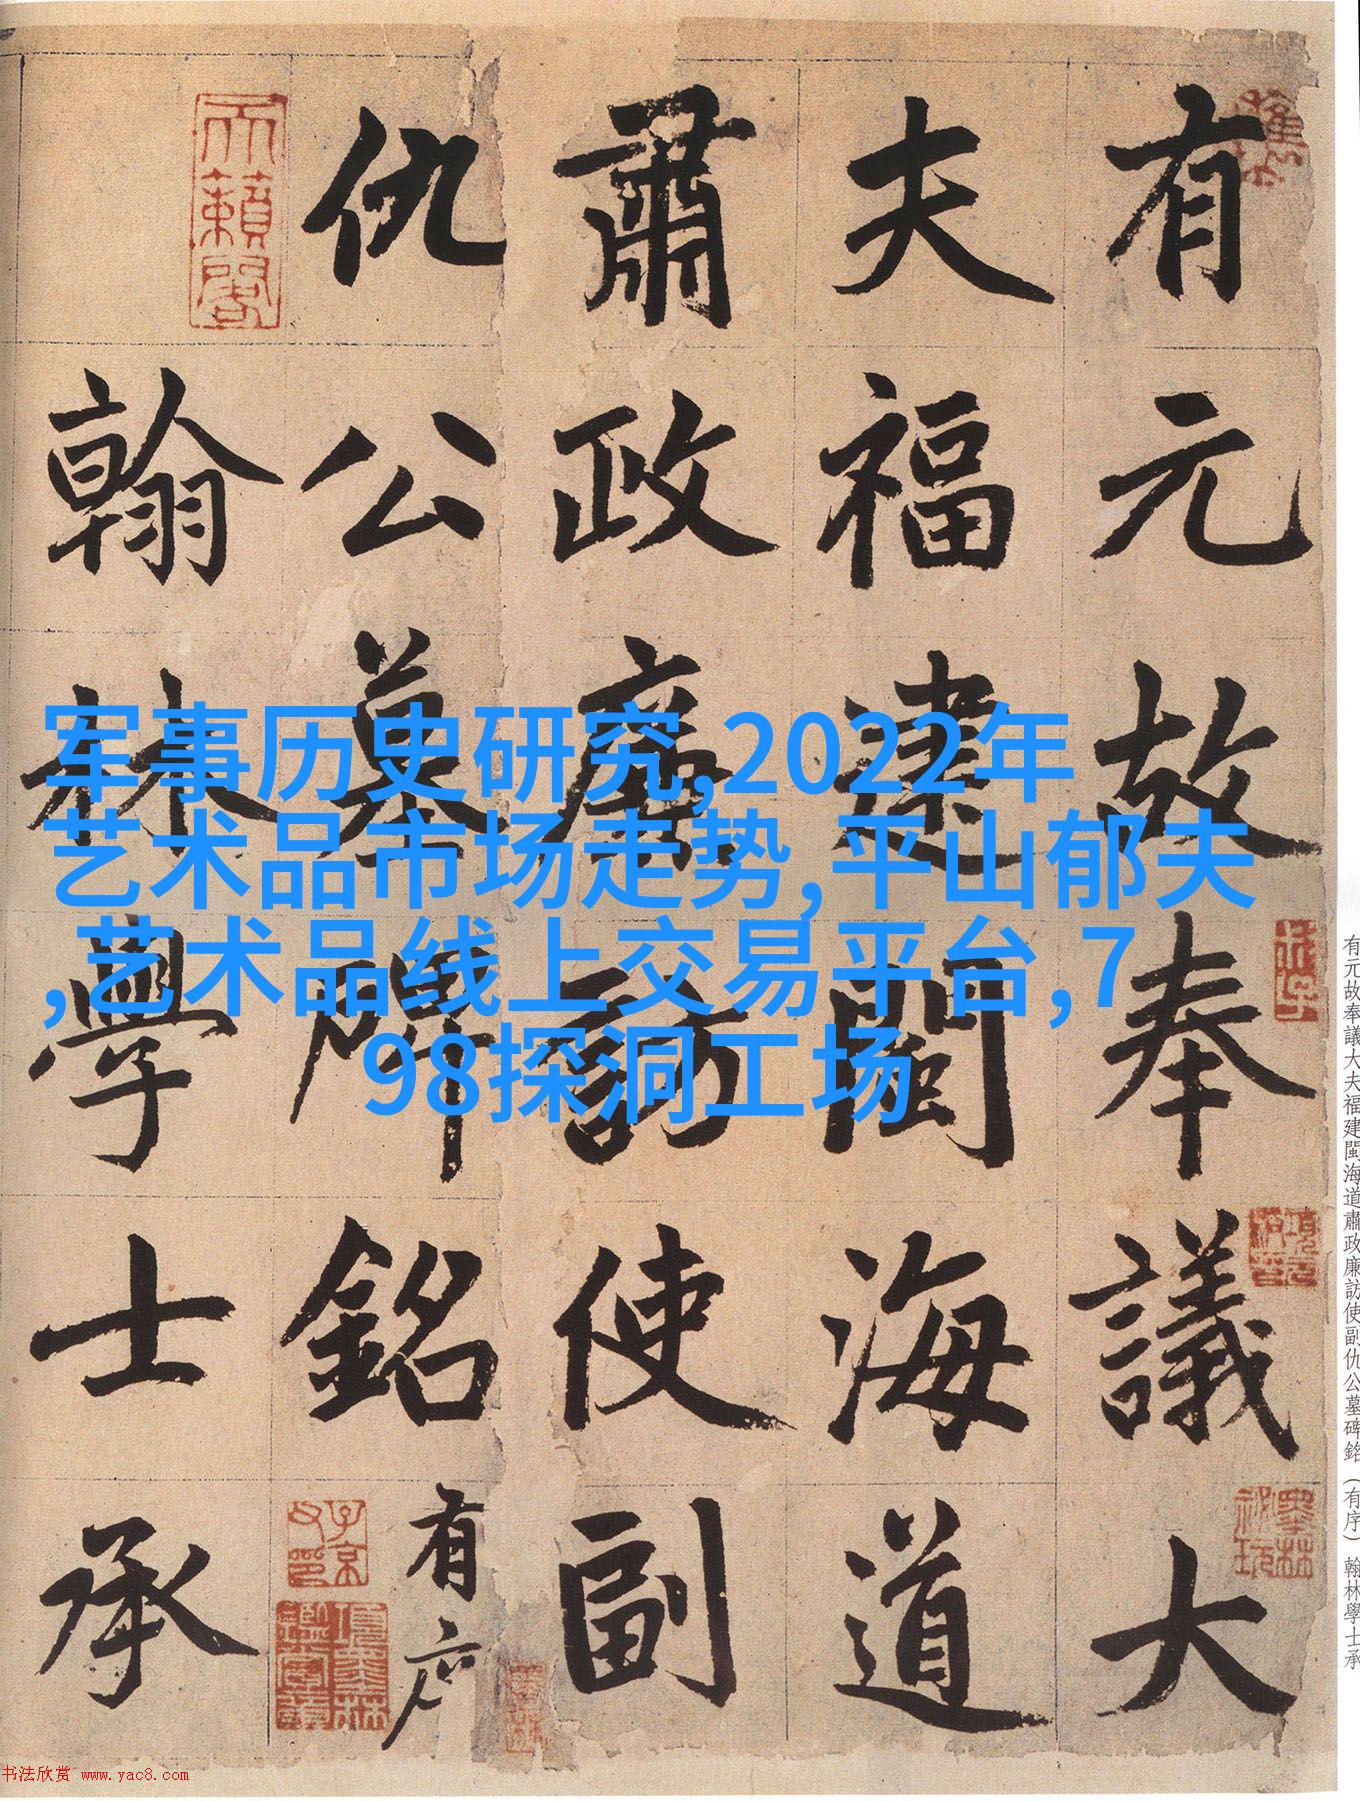 有元故奉議大
夫福建閩海道
肅政廉訪使副
仇公墓碑銘有序
翰林學士承
天籟閣
子京父印
項元汴印
墨林祕玩
军事历史研究,2022年
艺术品市场走势,平山郁夫
,艺术品线上交易平台,7
98探洞工场
有元故奉議大夫福建閩海道肅政廉訪使副仇公墓碑銘（有序）翰林學士承
书法欣赏 www.yac8.com